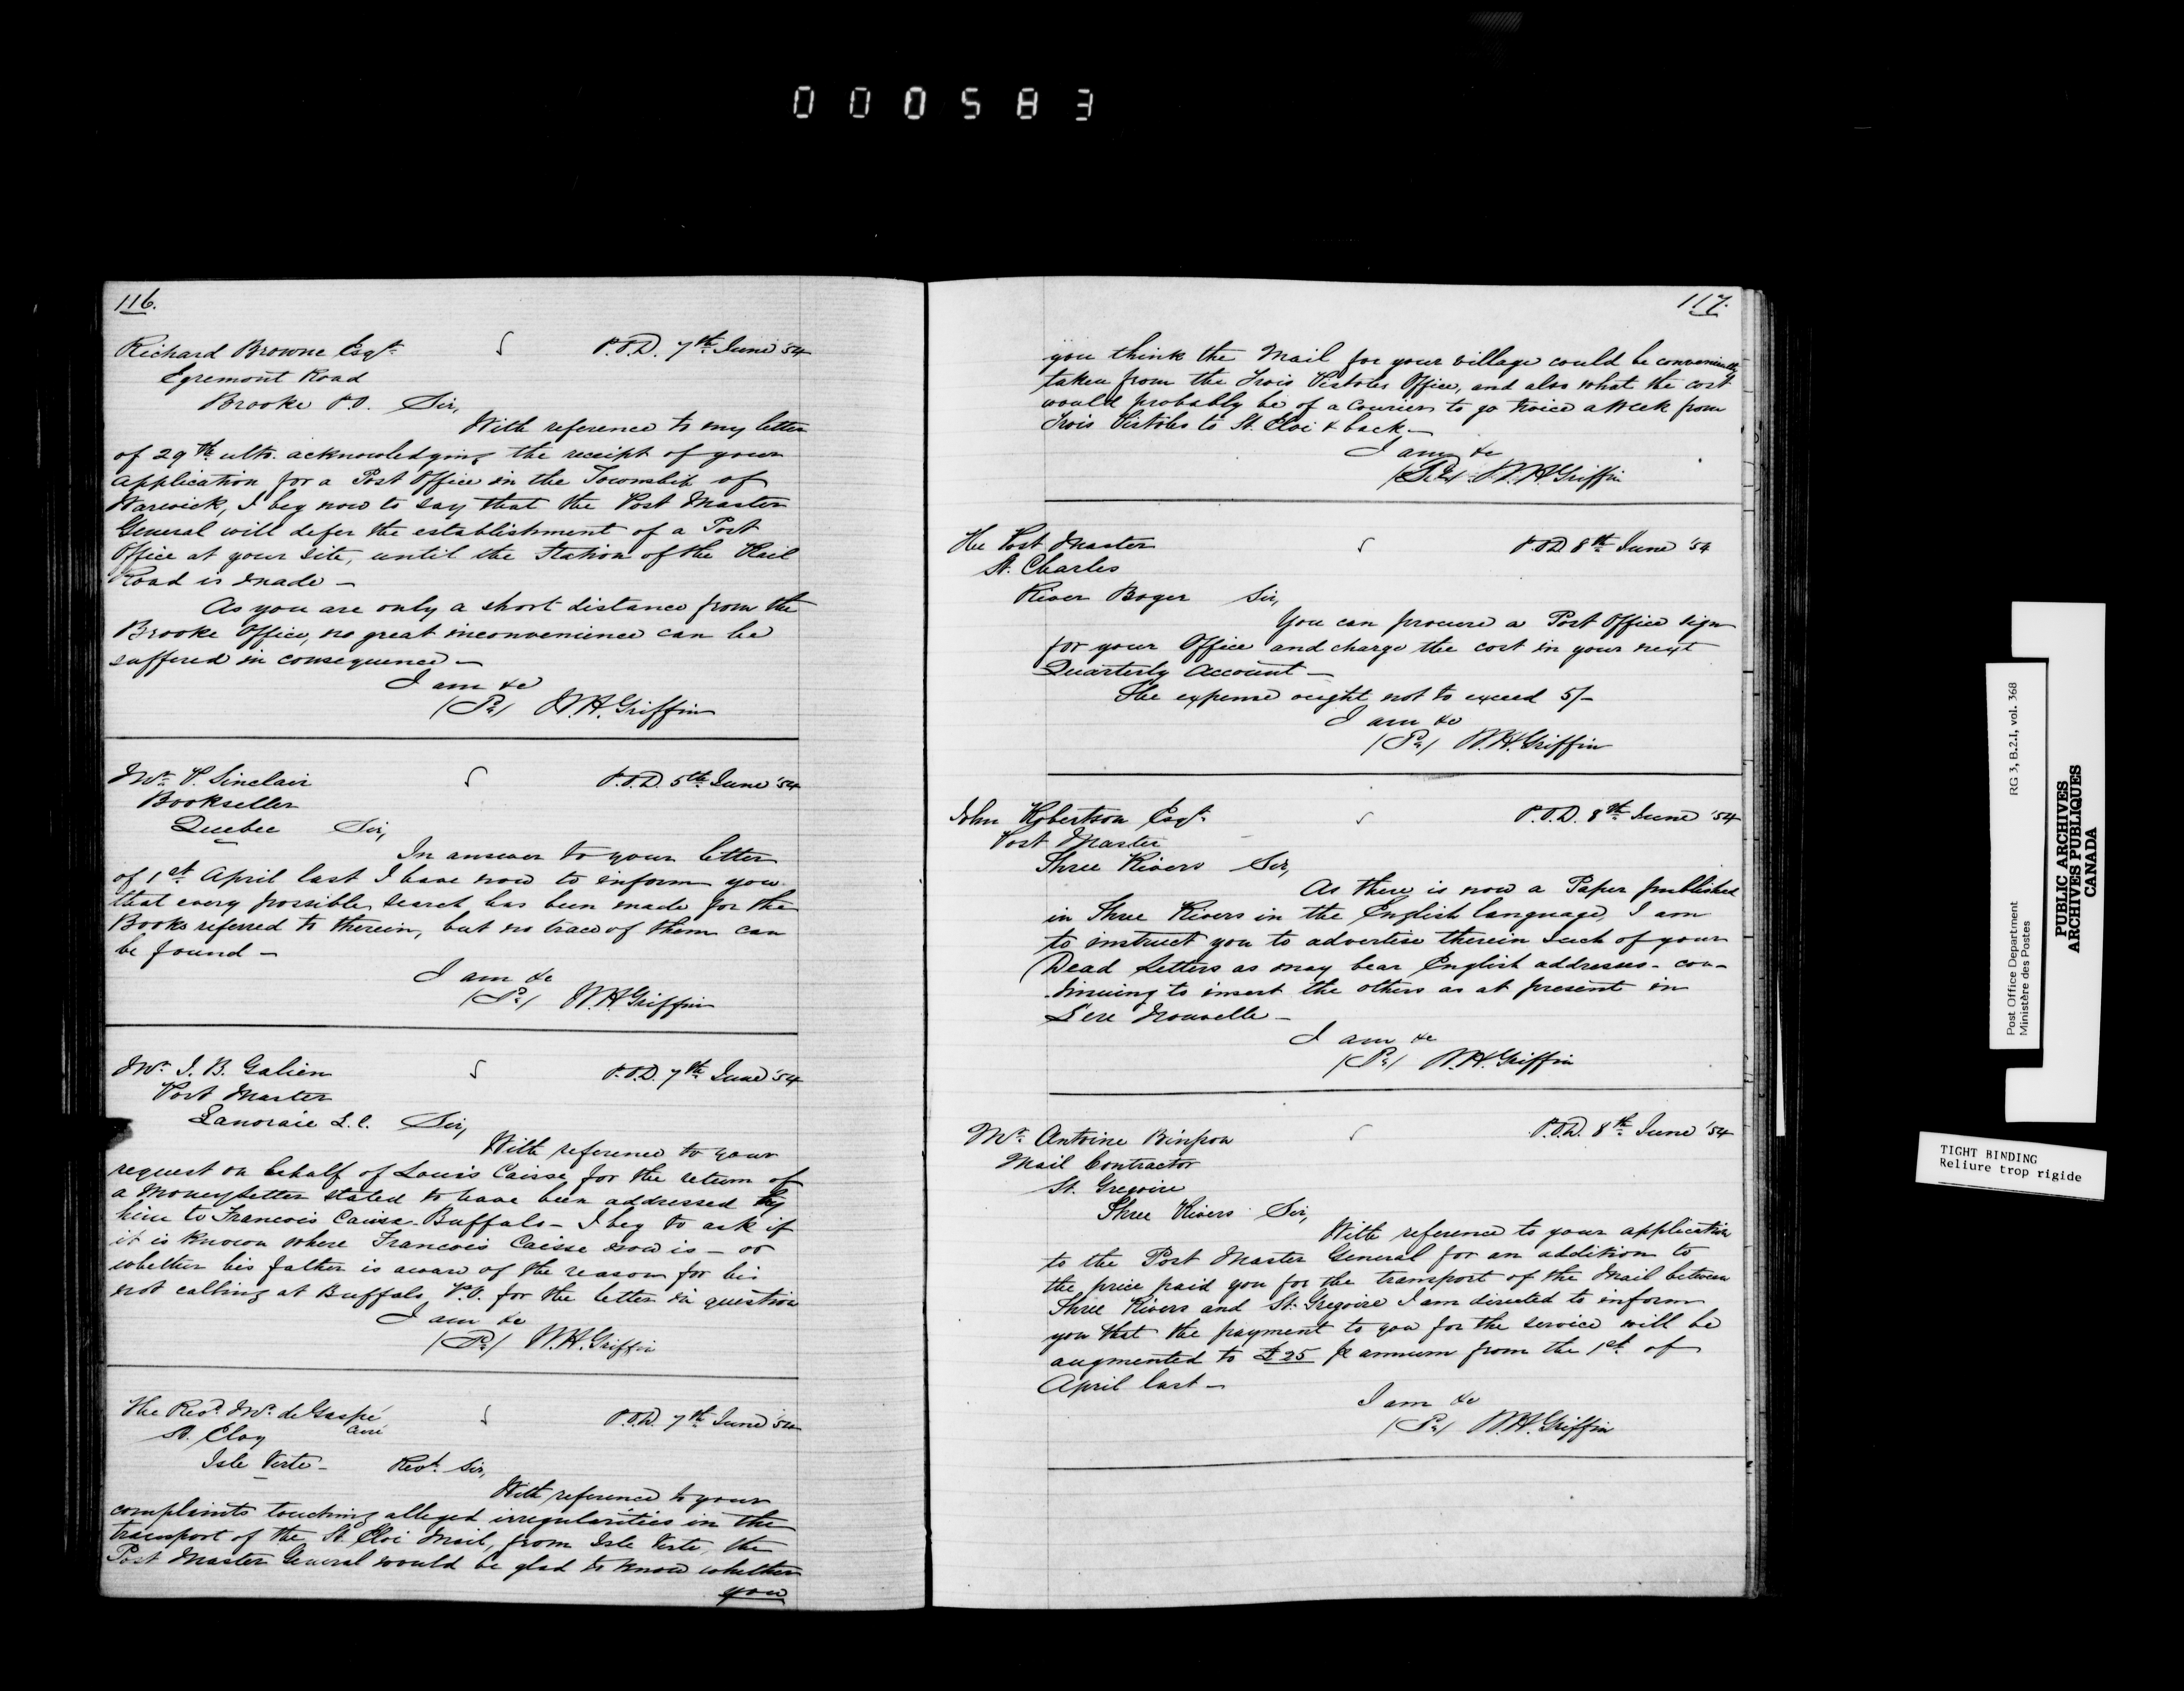 000583
116.
Richard Browne Esqr. P.O.D. 7th June '54
Egremont Road
Brooke P.O. Sir,
With reference to my letter
of 29th ulto. acknowledging the receipt of your
application for a Post Office in the Township of
Warwick, I beg now to say that the Post Master
General will defer the establishment of a Post
Office at your site, until the Station of the Rail
Road is made -
As you are only a short distance from the
Brooke Office, no great inconvenience can be
suffered in consequence -
I am &c
W.H. Griffin
Mr. P. Sinclair P.O.D. 5th June '54
Bookseller
Quebec Sir,
In answer to your letter
of 1st April last I have now to inform you
that every possible search has been made for the
Books referred to therein, but no trace of them can
be found -
I am &c
W.H. Griffin
Mr. J. B. Galien P.O.D. 7th June '54
Post Master
Lanoraie L.C. Sir,
With reference to your
request on behalf of Louis Caisse for the return of
a Money letter stated to have been addressed by
him to Francois Caisse Buffalo - I beg to ask if
it is known where Francois Caisse now is - or
whether his father is aware of the reason for his
not calling at Buffalo P.O. for the letter in question
I am &c
W.H. Griffin
The Revd. Mr. de Gaspé P.O.D. 7th June '54
Curé
St. Eloy
Isle Verte - Revd. Sir,
With reference to your
complaints touching alleged irregularities in the
transport of the St. Eloi Mail, from Isle Verte, the
Post Master General would be glad to know whether
you
117.
you think the Mail for your village could be conveniently
taken from the Trois Pistoles Office, and also what the cost
would probably be of a Courier to go twice a week from
Trois Pistoles to St. Eloi & back -
I am &c
W.H. Griffin
The Post Master P.O.D. 8th June '54
St. Charles
River Boyer Sir,
You can procure a Post Office sign
for your Office and charge the cost in your next
Quarterly Account -
The expense ought not to exceed 5/-
I am &c
W.H. Griffin
John Robertson Esqr. P.O.D. 8th June '54
Post Master
Three Rivers Sir,
As there is now a Paper published
in Three Rivers in the English language, I am
to instruct you to advertise therein such of your
Dead Letters as may bear English addresses - con-
tinuing to insert the others as at present in
L'ere Nouvelle -
I am &c
W.H. Griffin
Mr. Antoine P.O.D. 8th June '54
Mail Contractor
St. Gregoire
Three Rivers Sir,
With reference to your application
to the Post Master General for an addition to
the price paid you for the transport of the Mail between
Three Rivers and St. Gregoire I am directed to inform
you that the payment to you for the service will be
augmented to £25 per annum from the 1st of
April last -
I am &c
W.H. Griffin
Post Office Department RG 3, B.2.I, vol. 368
Ministère des Postes
PUBLIC ARCHIVES
ARCHIVES PUBLIQUES
CANADA
TIGHT BINDING
Reliure trop rigide